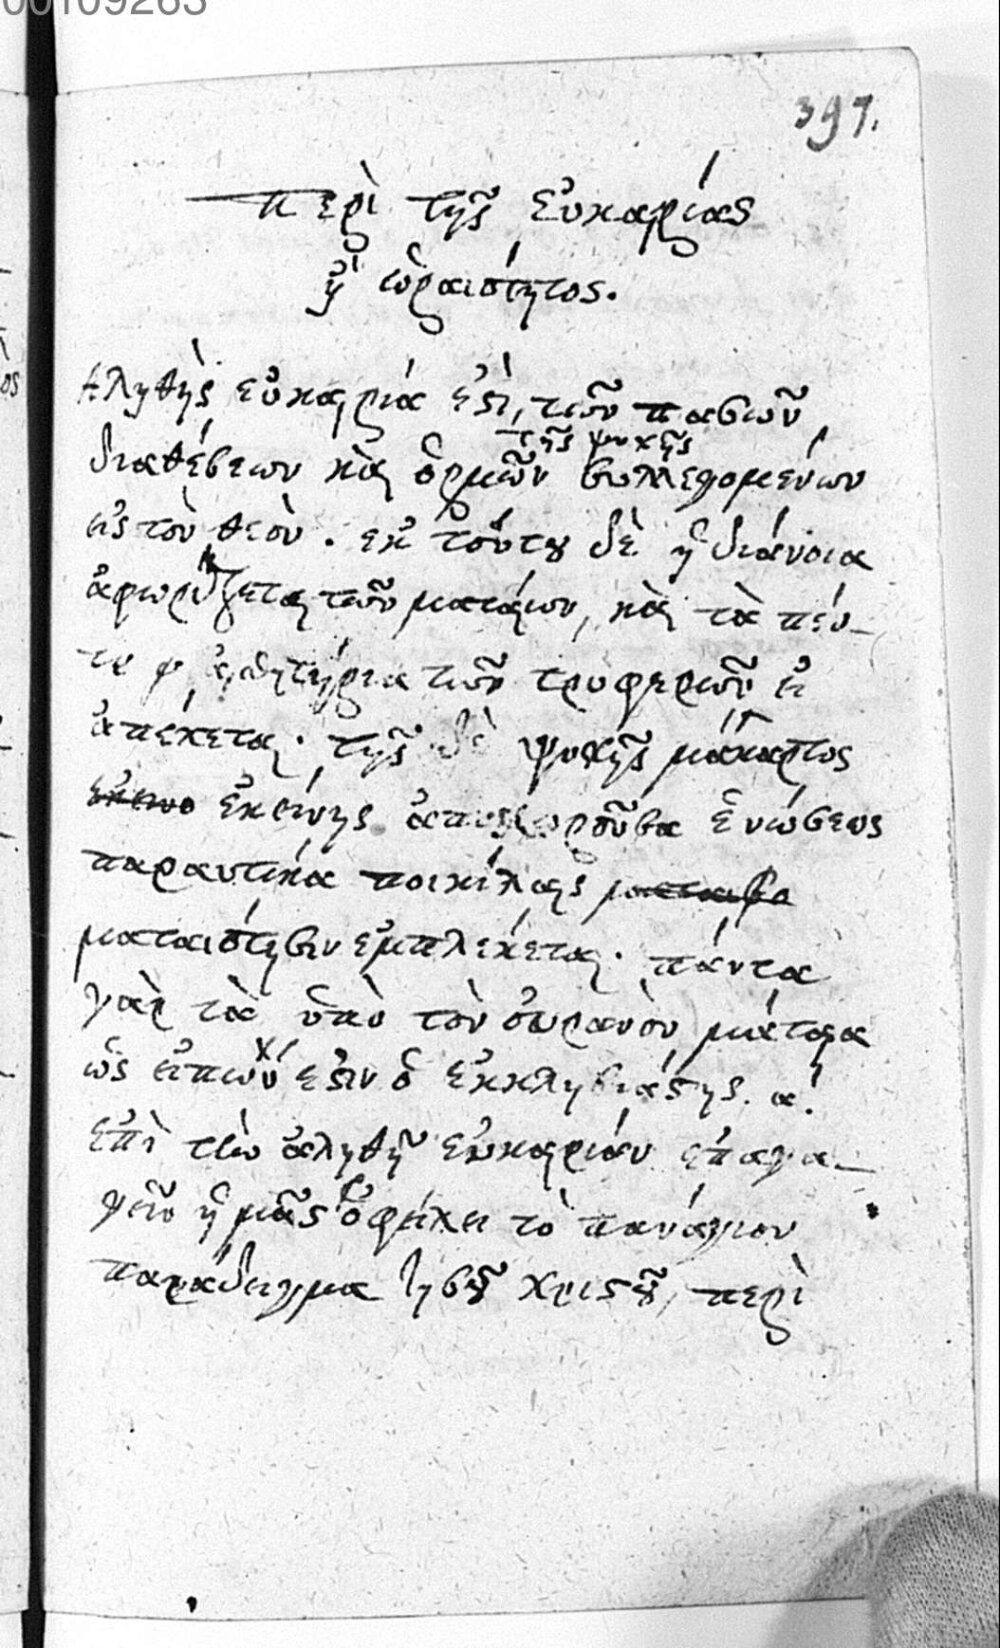 00109263
397.
Περὶ τῆς εὐκαιρίας
ἢ ὡραιότητος.
Ἀληθὴς εὐκαιρία ἐστὶ, τῶν πασῶν
τῆς ψυχῆς
διαθέσεων καὶ ὁρμῶν συλλεγομένων
εἰς τὸν θεὸν. ἐκ τούτου δὲ ἡ διάνοια
ἀφωρίζεται τῶν ματαίων, καὶ τὰ πέν-
τε αἰσθητήρια τῶν τρυφερῶν
ἀπέχεται. τῆς δὲ ψυχῆς μάκαρτος
ἐκείνης ἀποχωροῦσα ἑνώσεως
παραυτίκα ποικίλαις
ματαιότησιν ἐμπλέκεται. πάντα
γὰρ τὰ ὑπὸ τὸν οὐρανὸν μάταια
ὡς εἰπών ἐστιν ὁ ἐκκλησιάστης. α.
Ἐπὶ τὴν ἀληθῆ εὐκαιρίαν ἐπαγα-
γεῖν ἡμᾶς ὀφείλει τὸ πανάγιον
παράδειγμα Ἰησοῦ Χριστοῦ, περὶ